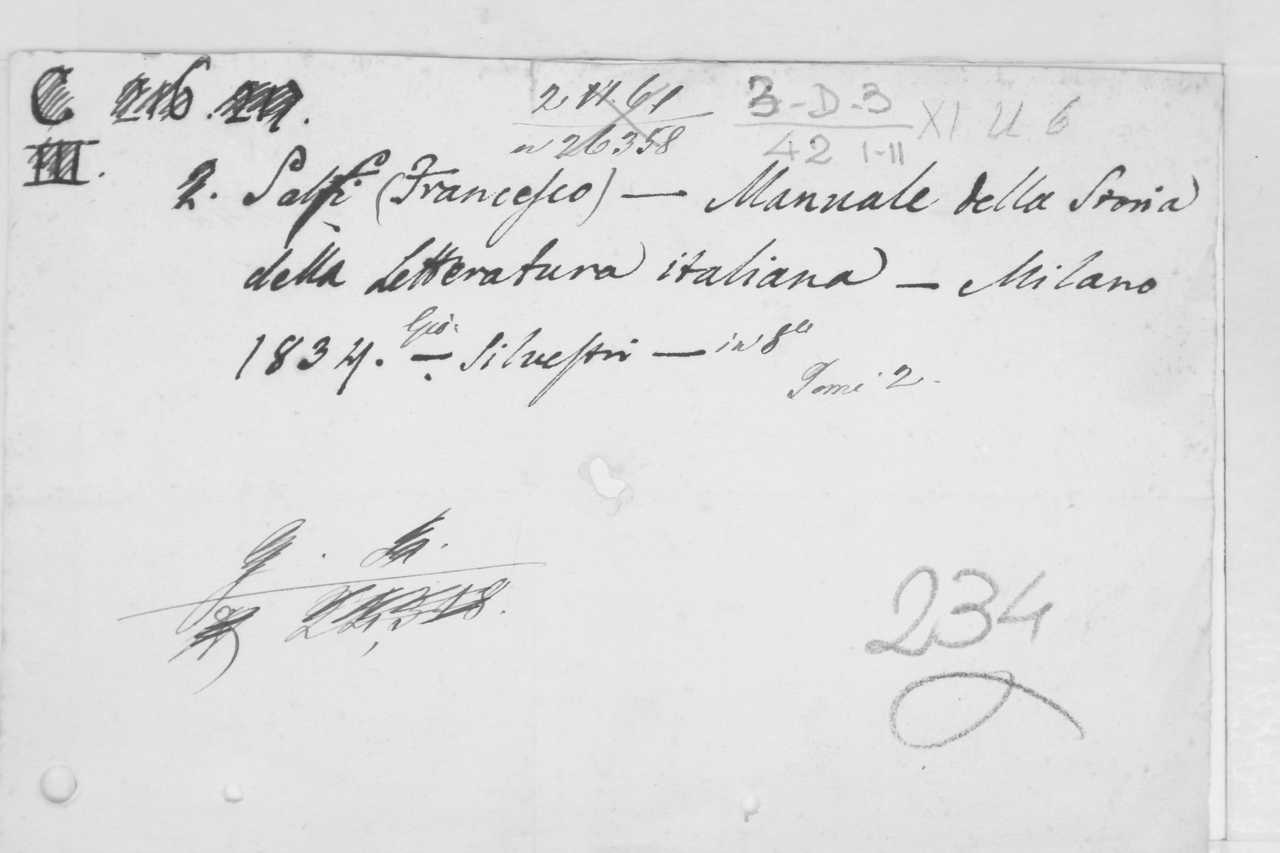 C 216. 217.
III.
2 H 61
n 26358
3-D-3
42 I-II
XI U 6
2. Salfi (Francesco) — Manuale della Storia
della Letteratura italiana — Milano
1834. — Gio: Silvestri — in 8°
Tomi 2.
234